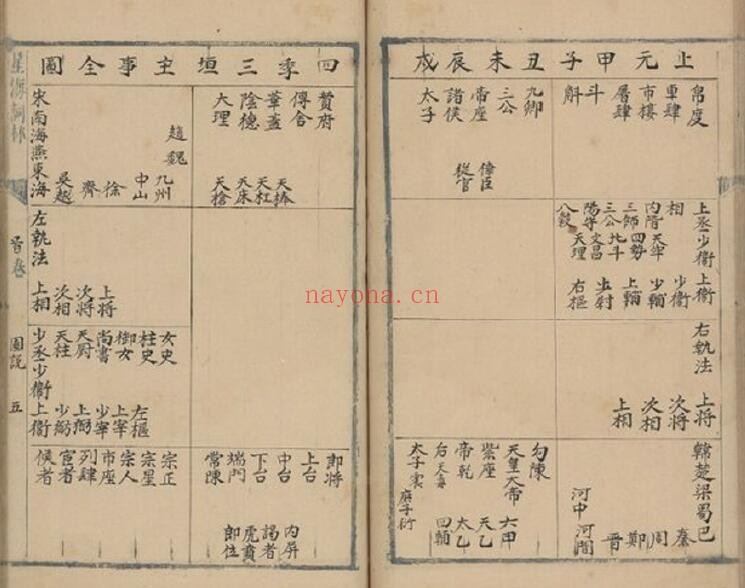 上元甲子丑未辰戌
帛度
車肆
市樓
屠肆
斗
斛
九卿
三公
帝座
諸侯
太子
倖臣
從官
上丞少衛上衛
相
少衛
內階
天牢
少輔
三師
四勢
上輔
三公
北斗
陽守
文昌
天理
右樞
八穀
右執法
上將
次將
次相
上相
韓楚梁蜀巴
秦
周
鄭
晉
河間
河中
勾陳
天皇大帝
六甲
紫座
天乙
帝乾
太乙
四輔
太子
庶子
四季三垣主事全圖
贊府
傳舍
華蓋
陰德
大理
天棓
天杠
天床
天槍
趙魏
九州
中山
徐
齊
吳越
宋南海燕東海
左執法
上將
次將
次相
上相
女史
柱史
御女
尚書
天厨
天柱
少丞少衛上衛
左樞
上宰
少宰
上弼
少弼
郎將
上台
中台
下台
端門
常陳
內屏
謁者
虎賁
郎位
宗正
宗星
宗人
市座
列肆
宦者
候者
首卷
圖説
五
nayona.cn